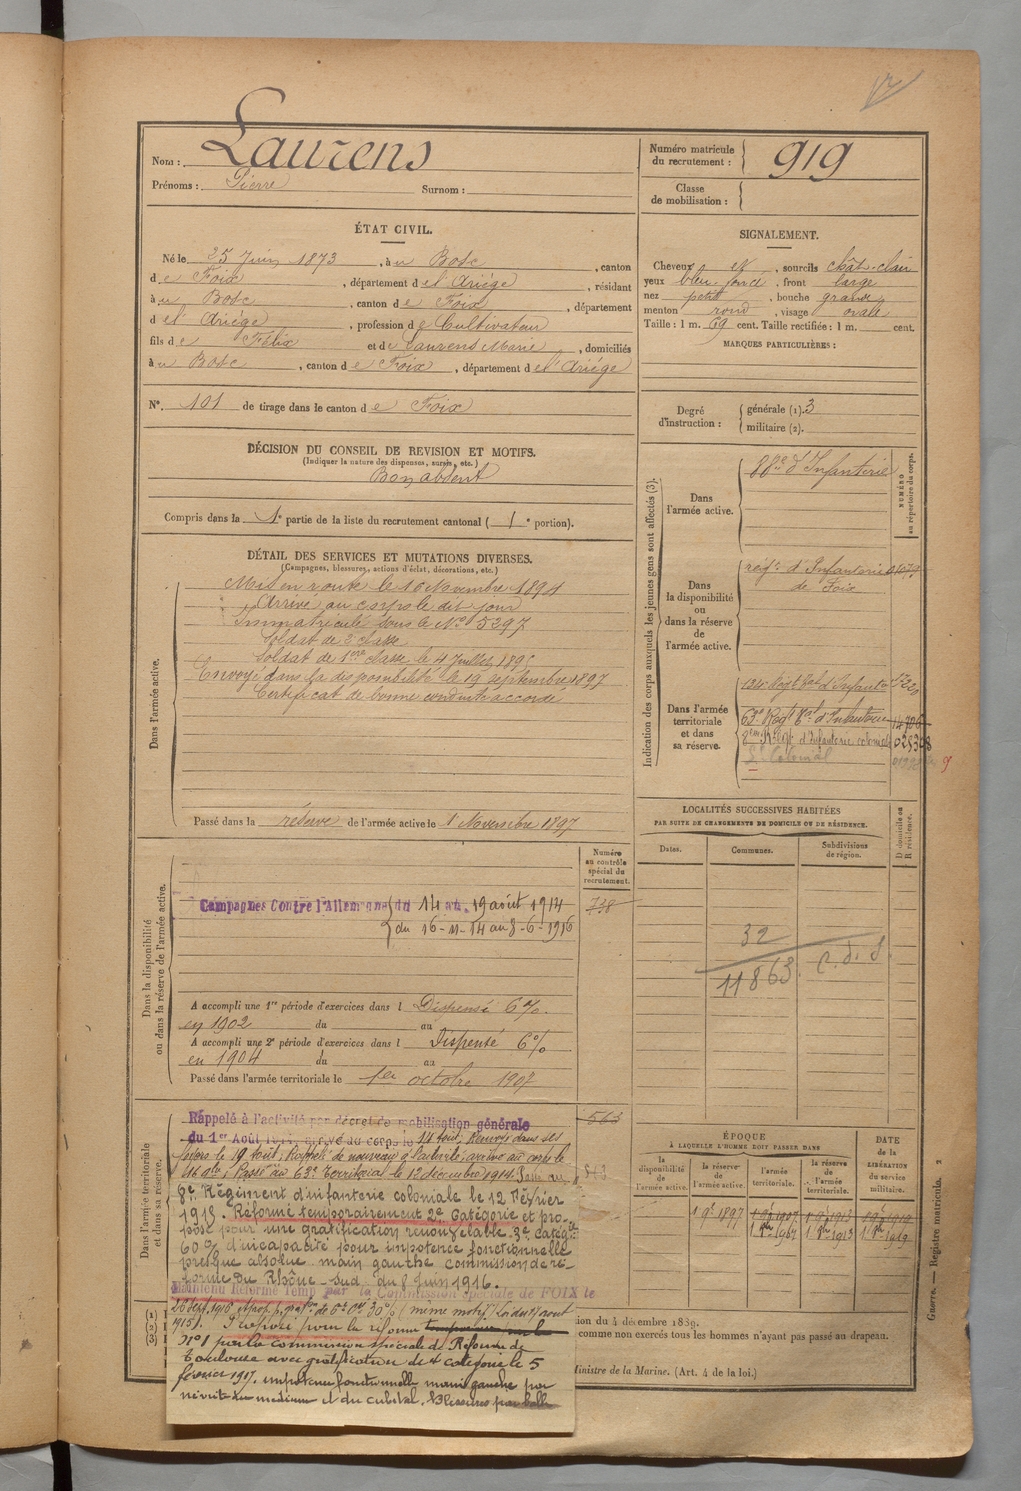 Nom : Laurens
Prénoms : Pierre Surnom :
Numéro matricule du recrutement : 919
Classe de mobilisation :
ÉTAT CIVIL.
Né le 25 Juin 1873, à u Bosc, canton
d e Foix, département d e l'Ariège, résidant
à u Bosc, canton d e Foix, département
d e l'Ariège, profession d e Cultivateur
fils d e Félix et d e Laurens Marie, domiciliés
à u Bosc, canton d e Foix, département d e l'Ariège
N° 101 de tirage dans le canton d e Foix
SIGNALEMENT.
Cheveux et, sourcils chât-clair
yeux bleu foncé, front large
nez petit, bouche grande
menton rond, visage ovale
Taille : 1 m. 69 cent. Taille rectifiée : 1 m. cent.
MARQUES PARTICULIÈRES :
Degré d'instruction : générale (1). 3
militaire (2).
DÉCISION DU CONSEIL DE REVISION ET MOTIFS.
(Indiquer la nature des dispenses, sursis, etc.)
Bon absent
Compris dans la 1e partie de la liste du recrutement cantonal ( 1e portion).
DÉTAIL DES SERVICES ET MUTATIONS DIVERSES.
(Campagnes, blessures, actions d'éclat, décorations, etc.)
Dans l'armée active.
Mis en route le 16 Novembre 1894
Arrivé au corps le dit jour
Immatriculé sous le No 5297
Soldat de 2e classe
Soldat de 1ère classe le 4 Juillet 1895
Envoyé dans la disponibilité le 19 septembre 1897
Certificat de bonne conduite accordé
Passé dans la réserve de l'armée active le 1 Novembre 1897
Indication des corps auxquels les jeunes gens sont affectés (3).
NUMÉRO au répertoire du corps.
Dans l'armée active.
88e d'Infanterie
Dans la disponibilité ou dans la réserve de l'armée active.
régt d'Infanterie
de Foix
Dans l'armée territoriale et dans sa réserve.
134e Régt Ter d'Infanterie
63e Régt Tal d'Infanterie 14706
8ème Régt d'Infanterie coloniale 028308
8e Colonial
LOCALITÉS SUCCESSIVES HABITÉES
PAR SUITE DE CHANGEMENTS DE DOMICILE OU DE RÉSIDENCE.
Dates. Communes. Subdivisions de région. D domicile ou R résidence.
32
11863 C. d. S
Numéro au contrôle spécial du recrutement.
738
Dans la disponibilité ou dans la réserve de l'armée active.
Campagnes Contre l'Allemagne du 14 au 19 août 1914
du 16-11-14 au 8-6-1916
A accompli une 1re période d'exercices dans l Dispensé 6%
en 1902 du au
A accompli une 2e période d'exercices dans l Dispensé 6%
en 1904 du au
Passé dans l'armée territoriale le 1er octobre 1907
Dans l'armée territoriale et dans sa réserve.
563
Rappelé à l'activité par décret de mobilisation générale
du 1er Août 1914, arrivé au corps le 14 août, Renvoyé dans ses
foyers le 19 août; Rappelé de nouveau à l'activité; arrivé au corps le
16 9bre; Passé au 63e Territorial le 12 décembre 1914. Passé au
8e Régiment d'infanterie coloniale le 12 Février
1915. Réformé temporairement 2e Catégorie et pro-
posé pour une gratification renouvelable 3e catégie
60% d'incapacité pour impotence fonctionnelle
presque absolue main gauche commission de ré-
forme du Rhône-sud du 8 Juin 1916.
Maintenu Réformé Temp par la Commission spéciale de FOIX le
1915). Proposé pour la réforme
N°1 par la commission spéciale de Réforme de
Toulouse avec gratification de 4e catégorie le 5
février 1917. impotence fonctionnelle main gauche par
névrite du médian et du cubital. Blessures par balle
ÉPOQUE
À LAQUELLE L'HOMME DOIT PASSER DANS
la disponibilité de l'armée active. la réserve de l'armée active. l'armée territoriale. la réserve de l'armée territoriale. DATE de la LIBÉRATION du service militaire.
1 9e 1897 1 9e 1907 1 9e 1913 1 9e 1919
1 8bre 1907 1 8bre 1913 1 8bre 1919
(1)
(2)
(3)
ion du 4 décembre 1839.
comme non exercés tous les hommes n'ayant pas passé au drapeau.
Ministre de la Marine. (Art. 4 de la loi.)
Guerre. — Registre matricule. 2